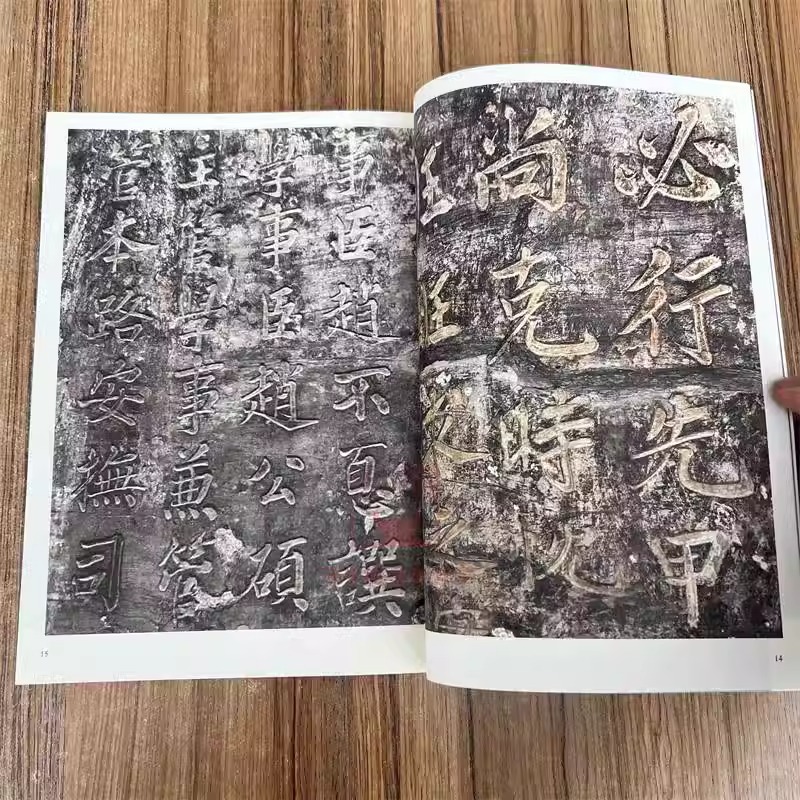 必行先甲
尚克時忱
事臣趙不譔
學事臣趙公碩
主管學事兼管
管本路安撫司
14
15